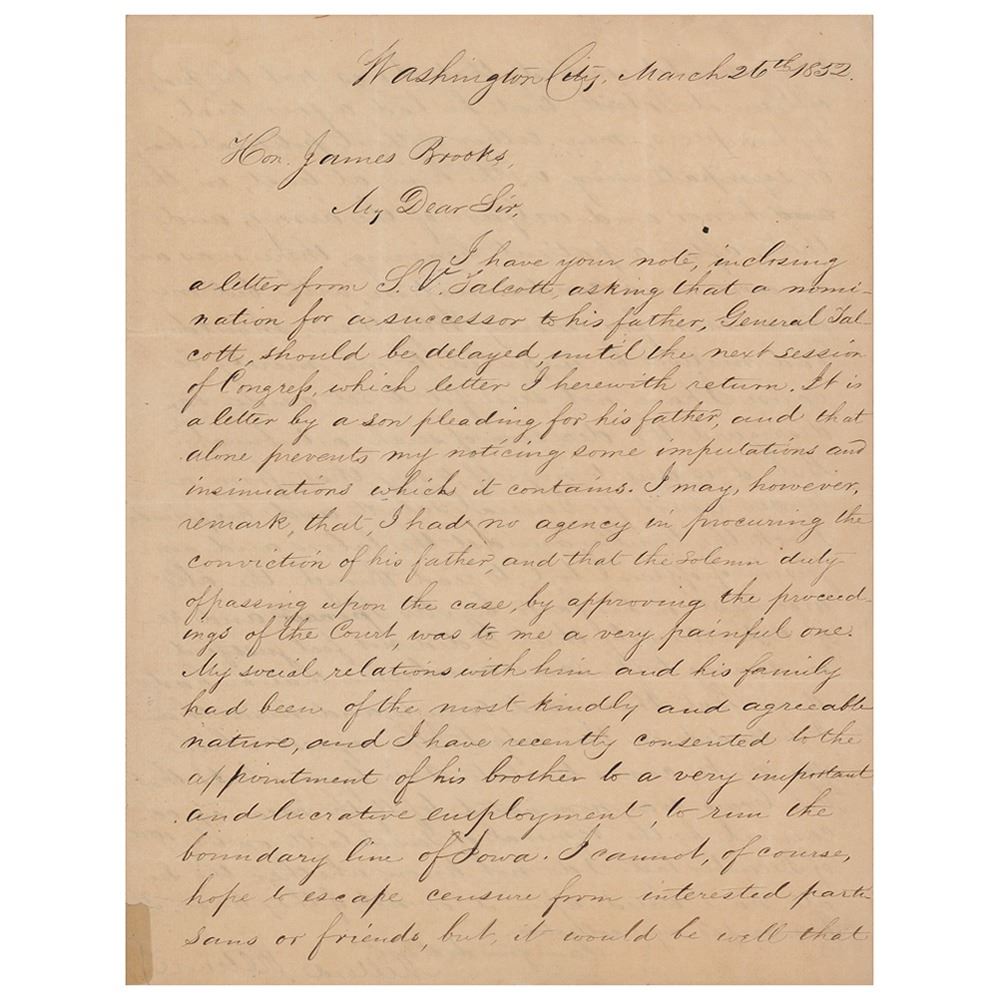 Washington City, March 26th 1852.
Hon. James Brooks,
My Dear Sir,
I have your note, inclosing
a letter from S. V. Talcott, asking that a nomi-
nation for a successor to his father, General Tal-
cott, should be delayed, until the next session
of Congress, which letter I herewith return. It is
a letter by a son pleading for his father, and that
alone prevents my noticing some imputations and
insinuations which it contains. I may, however,
remark, that, I had no agency in procuring the
conviction of his father, and that the solemn duty
of passing upon the case, by approving the proceed-
ings of the Court, was to me a very painful one.
My social relations with him and his family
had been of the most kindly and agreeable
nature, and I have recently consented to the
appointment of his brother to a very important
and lucrative employment, to run the
boundary line of Iowa. I cannot, of course,
hope to escape censure from interested parti-
sans or friends, but, it would be well that